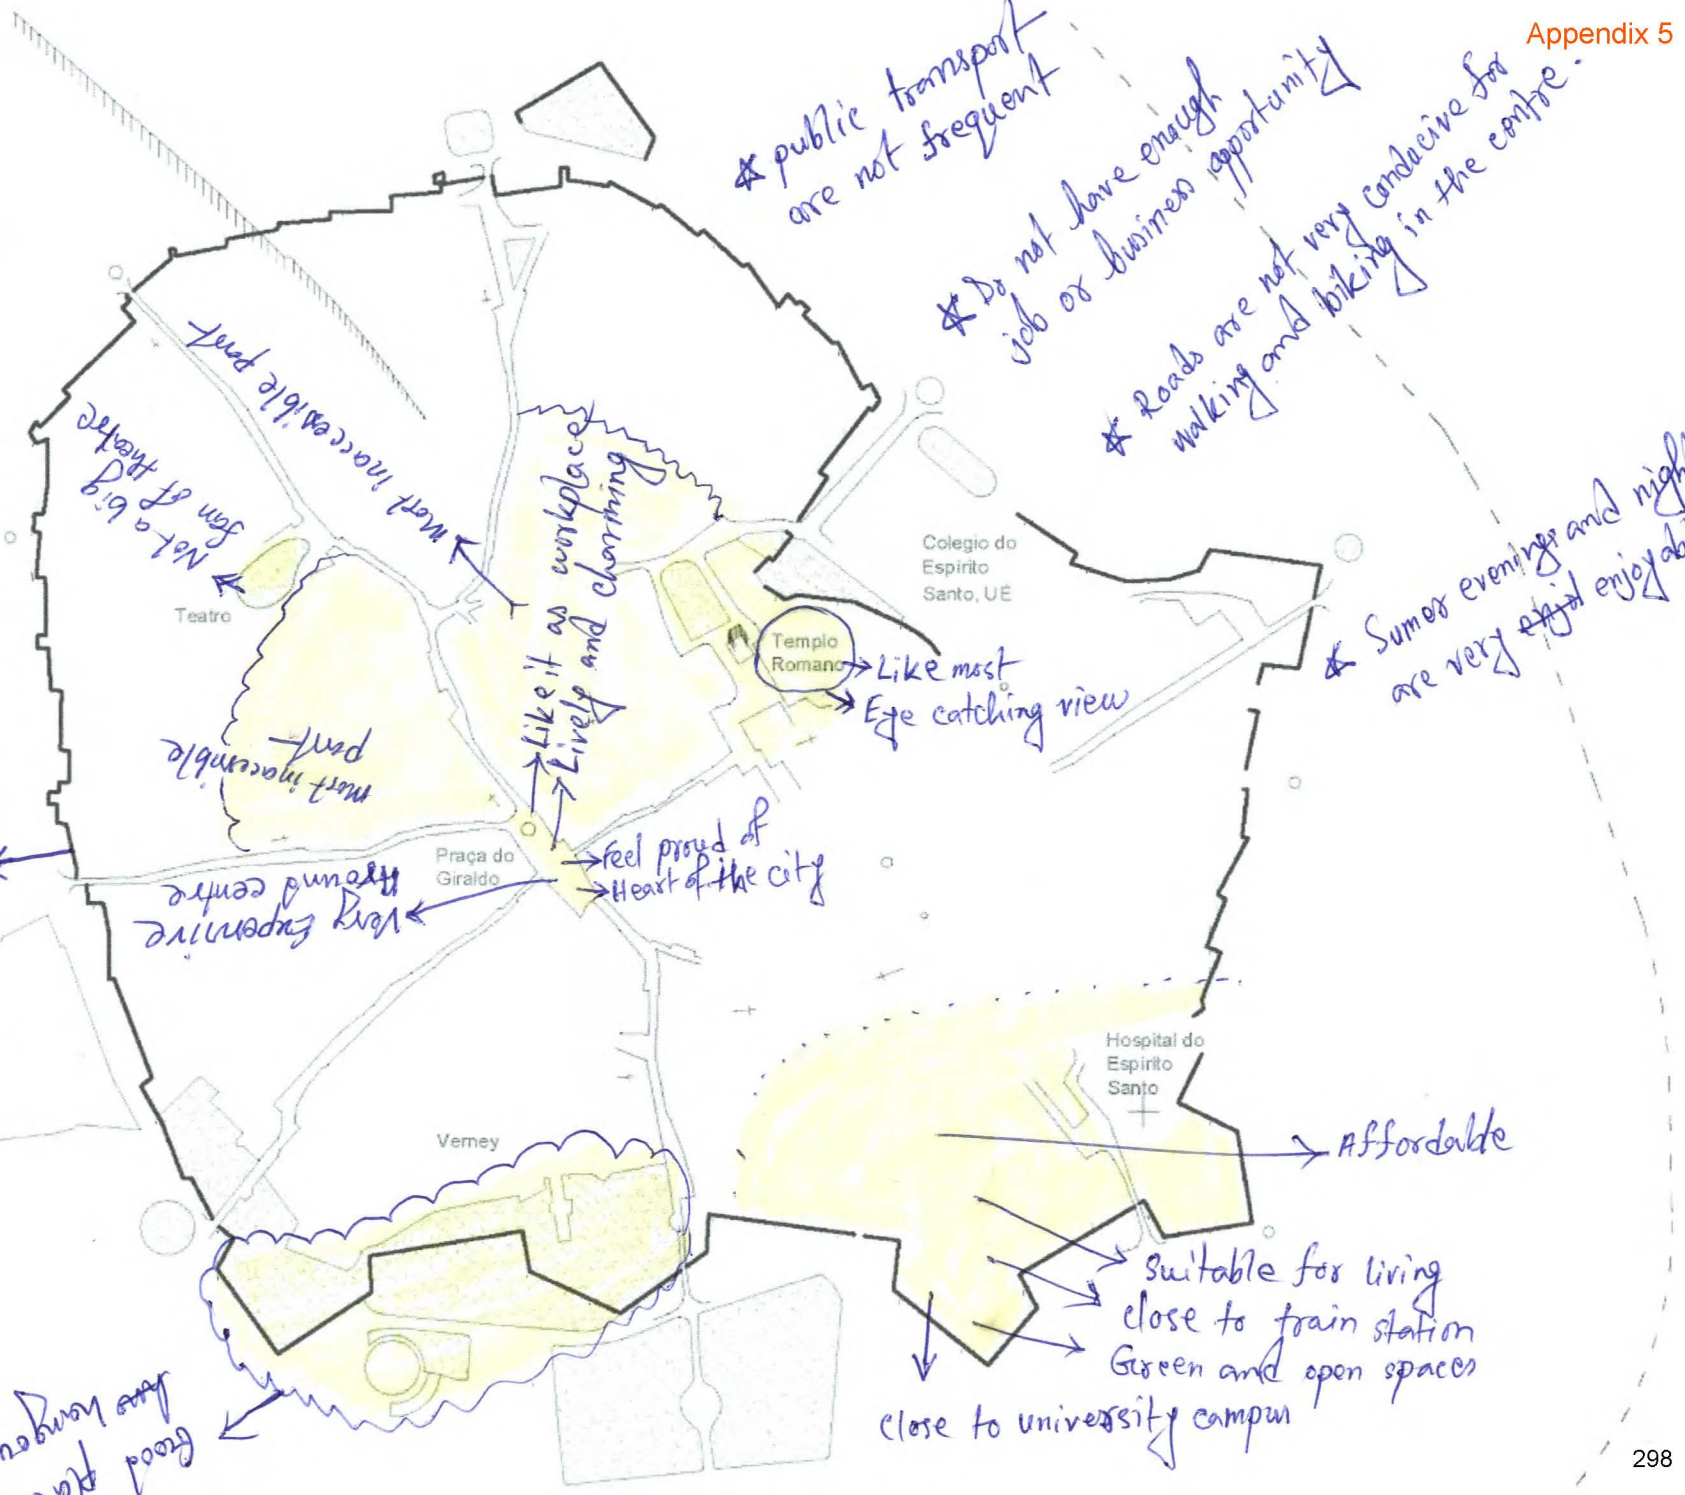 Appendix 5
* public transport
are not frequent
* Do not have enough
job or business opportunity
* Roads are not very conducive for
walking and biking in the centre.
* Sumer evenings and nigh
are very enjoyab
Most inaccessible part
Not a big
fan of theatre
Teatro
Like it as workplace
Lively and charming
Colegio do
Espirito
Santo, UÉ
Templo
Romano
Like most
Eye catching view
most inaccessible
part
Praça do
Giraldo
Feel proud of
Heart of the city
Very Expensive
Around centre
Hospital do
Espirito
Santo
Verney
Affordable
Suitable for living
close to train station
Green and open spaces
close to university campus
Good
298